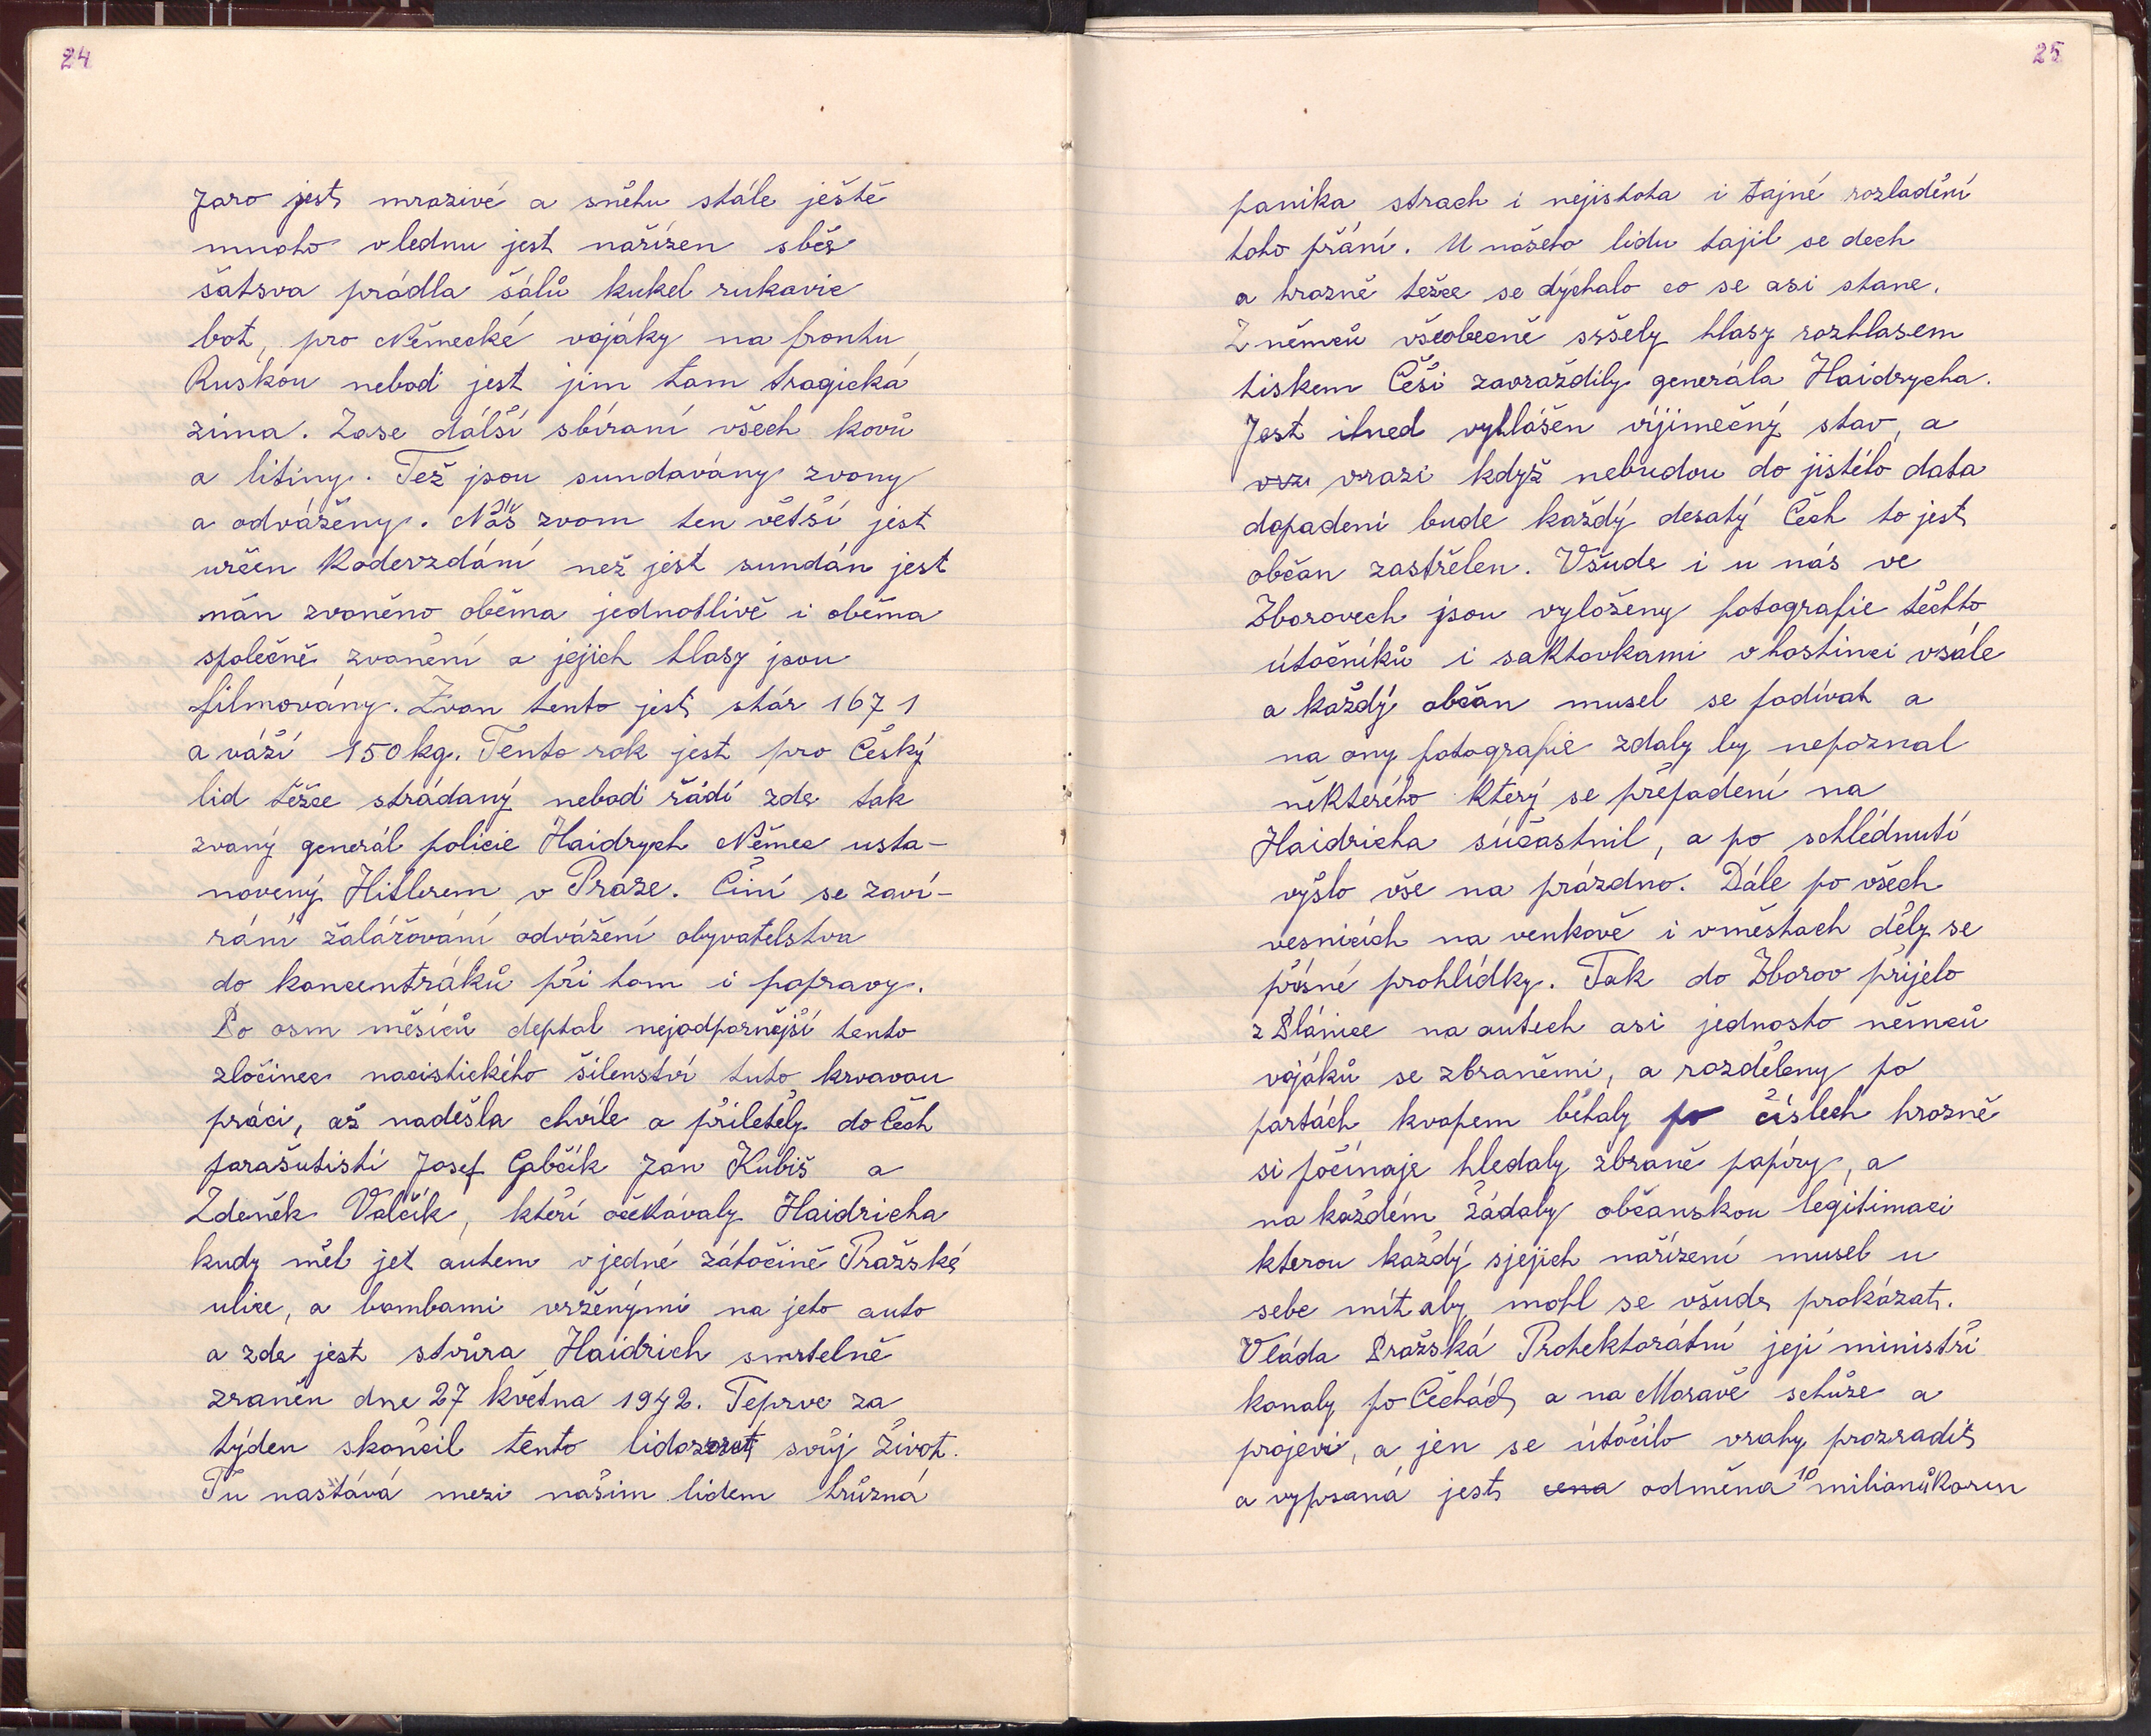 24
Jaro jest mrazivé a sněhu stále ještě
mnoho vlednu jest nařízen sběr
šatsva prádla šálů kukel rukavic
bot, pro Německé vojáky na frontu
Ruskou nebodi jest jim tam tragická
zima. Zase dálší sbíraní všech kovů
a litiny. Též jsou sundavány zvony
a odváženy. Náš zvom ten větší jest
určen Kodevzdání než jest sundán jest
nán zvoněno oběma jednotlivě i oběma
společně zvonění a jejich hlasy jsou
filmovány. Zvon tento jest stár 1671
a váží 150 kg. Tento rok jest pro Český
lid těžce strádaný nebodi řádí zde tak
zvaný generál policie Haidrych Němec usta-
novený Hitlerem v Praze. Činí se zaví-
rání žalářování odvážení obyvatelstva
do koncentráků při tom i popravy.
Po osm měsíců deptal nejodpornější tento
zločinec nacistického šílenství tuto krvavou
práci, až nadešla chvíle a přiletěly do Čech
parašutisti Josef Gabčík Jan Kubiš a
Zdeněk Valčík, kteří očekávaly Haidricha
kudy měl jet autem v jedné zátočině Pražské
ulice, a bombami vrženými na jeho auto
a zde jest stvůra Haidrich smrtelně
zraněn dne 27 května 1942. Teprve za
týden skončil tento lidožrout svůj život.
Tu nastává mezi našim lidem hrůzná
25
panika strach i nejistota i tajné rozladění
toho přání. U našeho lidu tajil se dech
a hrozně těžce se dýchalo co se asi stane.
Z němců všeobecně sršely hlasy rozhlasem
tiskem Češi zavraždily generála Haidrycha.
Jest ihned vyhlášen vijimečný stav, a
vrz vrazi když nebudou do jistého data
dopadeni bude každý desatý Čech to jest
občan zastřelen. Všude i u nás ve
Zborovech jsou vyloženy fotografie těchto
útočníků i saktovkami v hostinci vsále
a každý občan musel se podívat a
na ony fotografie zdaly by nepoznal
některého který se přepadení na
Haidricha súčastnil, a po schlédnutí
vyšlo vše na prázdno. Dále po všech
vesnicích na venkově i vměstach děly se
přísné prohlídky. Tak do Zborov přijelo
z Plánice na autech asi jednosto němců
vojáků se zbraněmi, a rozděleny po
partách kvapem běhaly po číslech hrozně
si počínaje hledaly zbraně papíry, a
na každém žádaly občanskou legitimaci
kterou každý sjejich nařízení musel u
sebe mít aby mohl se všude prokázat.
Vláda Pražská Protektorátní její ministři
konaly po Čechách a na Moravě schůze a
projevi, a jen se útočilo vrahy prozradit
a vypsaná jest cena odměna 10 milionůKorun